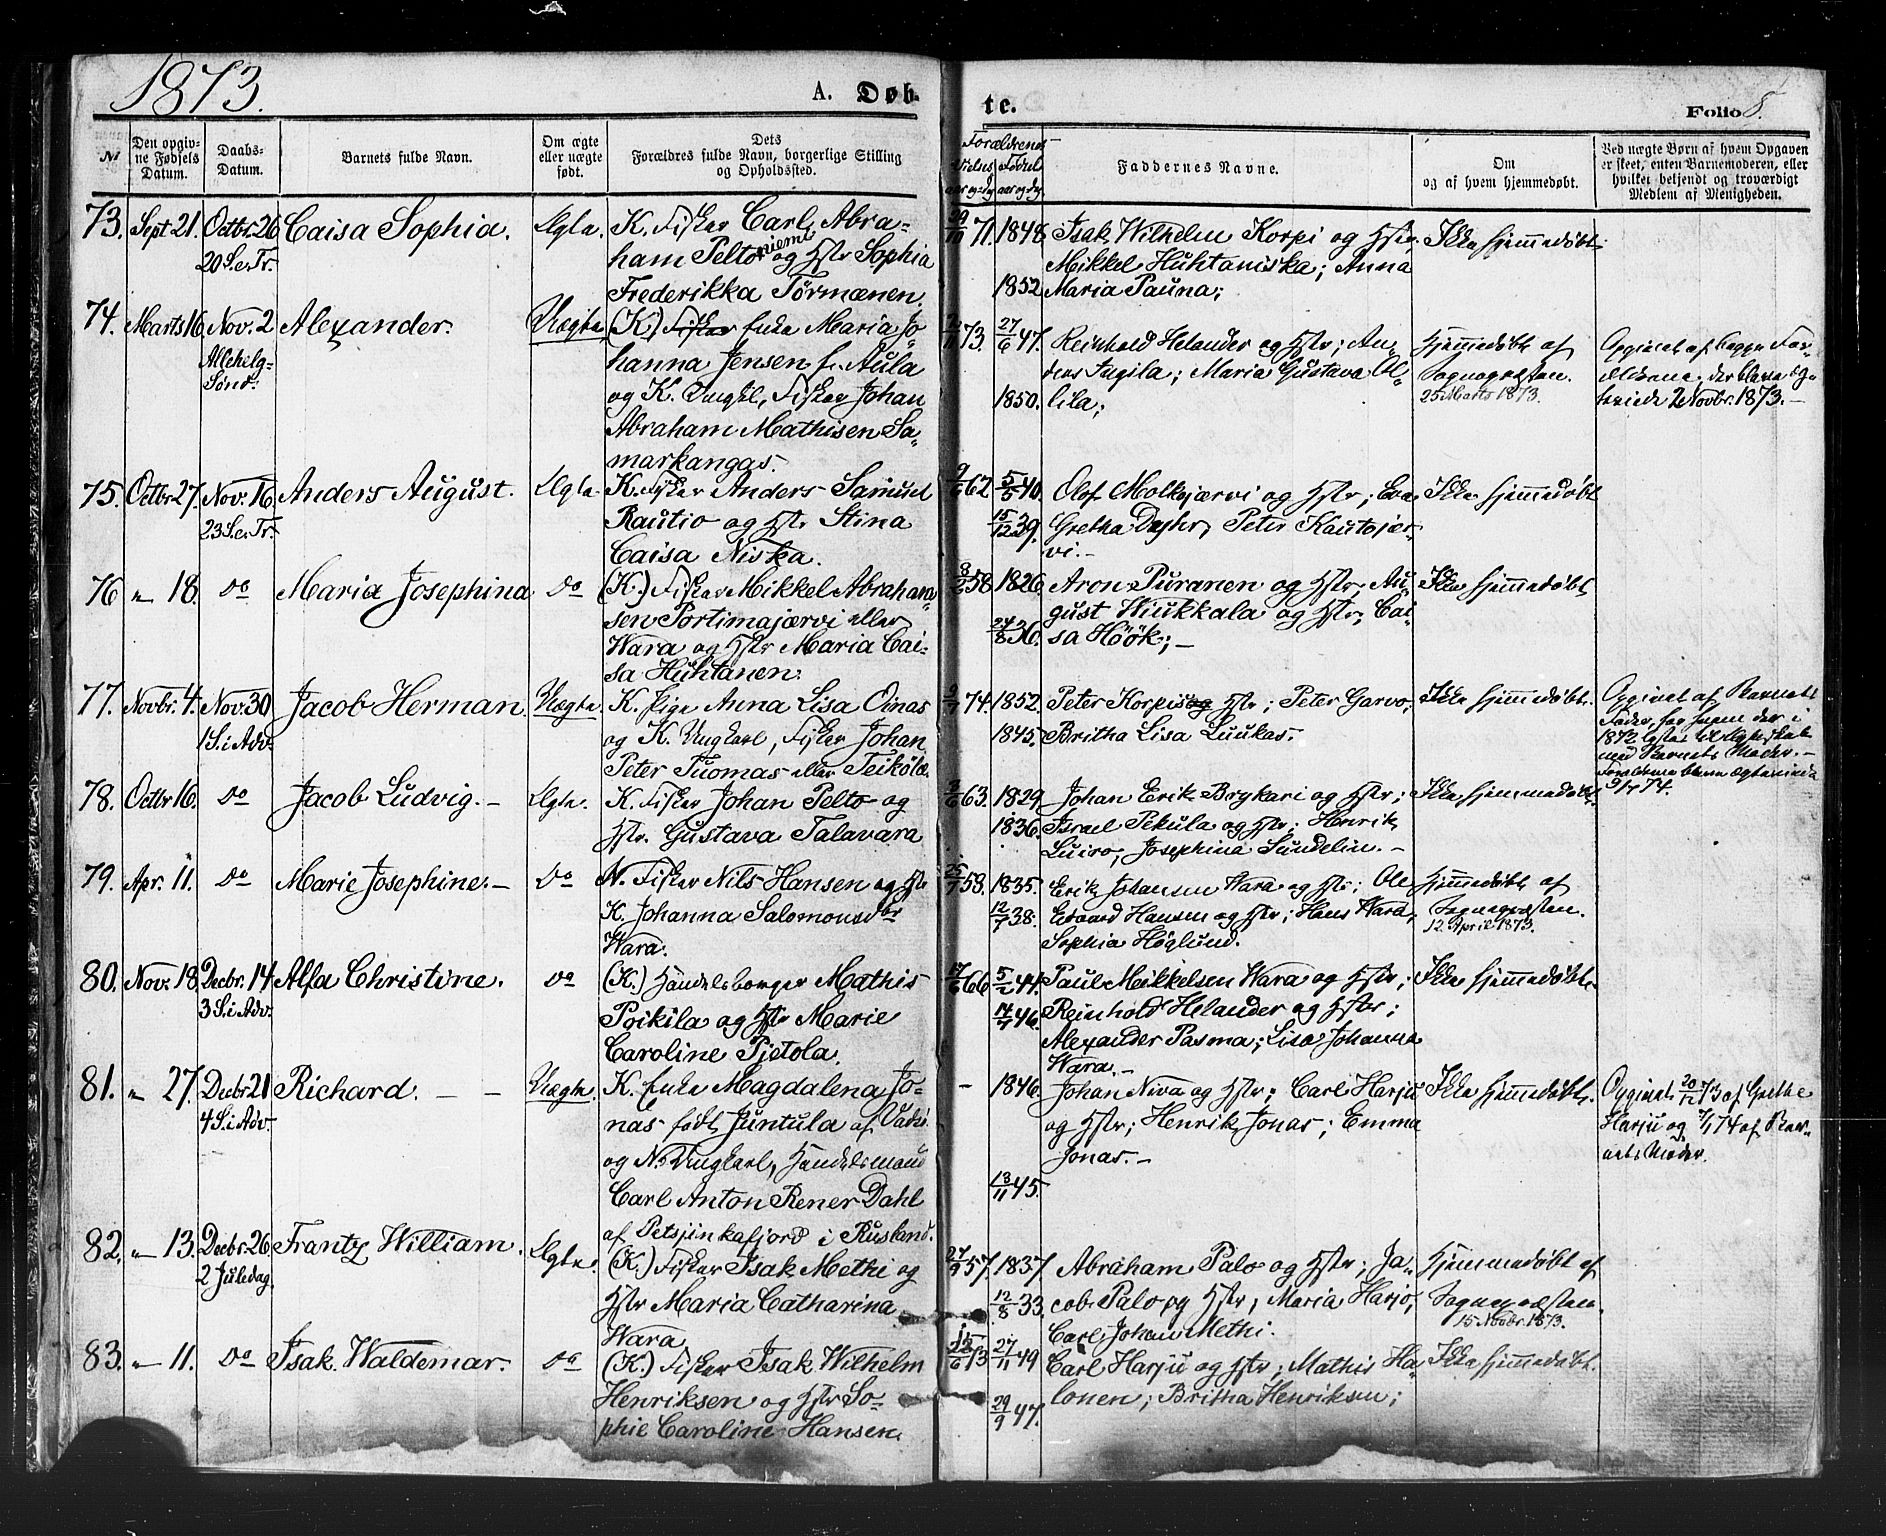 1873.
A. Døb-
te.
Folio 8.
№
Den opgiv-
ne Fødsels
Datum.
Daabs-
Datum.
Barnets fulde Navn.
Om ægte
eller uægte
født.
Dets
Forældres fulde Navn, borgerlige Stilling
og Opholdssted.
Forældrenes
Vielses
aar og dag
Fødsels
aar og dag
Faddernes Navne.
Om
og af hvem hjemmedøbt.
Ved uægte Børn af hvem Opgaven
er skeet, enten Barnemoderen, eller
hvilket betjendt og troværdigt
Medlem af Menigheden.
73. Sept 21. Octbr. 26 Caisa Sophia. Ægte. K. Fisker Carl Abra- 71. 1848. Isak Wilhelm Korpi og Hstr; Ikke hjemmedøbt.
20 S.e.Tr. ham Peltoniemi og Hstr Sophia Mikkel Huhtaniska; Anna
Frederikka Törmænen. 1852 Maria Pauna;
74. Marts 16. Nov. 2 Alexander. Uægte (K.) Enke Maria Jo- 73. 27/6 47. Reinhold Helander og Hstr; An- Hjemmedøbt af Opgivet af begge For-
Allehelg- hanna Jensen f. Aula ders Fugila; Maria Gustava Ol- Sognepræsten. ældrene, der bleve æg-
Sønd. og K. Ungkl, Fisker Johan 1850. lila; 25 Marts 1873. teviede 2 Novbr. 1873. –
Abraham Mathisen Sa-
markangas.
75. Octbr 27. Nov. 16. Anders August. Ægte. K. Fisker Anders Samuel 9/6 62. 5/5 40. Olof Molkojærvi og Hstr; Eva Ikke hjemmedøbt
23 S.e.Tr. Rautio og Hstr Stina 15/12 39. Gretha Dyhr, Peter Kautojær-
Caisa Niska. vi. –
76 " 18. do Maria Josephina do (K.) Fisker Mikkel Abraham- 8/2 58 1826. Aron Puranen og Hstr; Au- Ikke hjemmedøbt
sen Portimajærvi eller gust Wiukkala og Hstr, Cai-
Wara og Hstr Maria Cai- 24/8 36. sa Höök; –
sa Huhtanen.
77. Novbr. 4. Nov. 30 Jacob Herman. Uægte. K. Pige Anna Lisa Oinas 9/1 74. 1852. Peter Korpi og Hstr; Peter Garvo, Ikke hjemmedøbt. Opgivet af Barnets
1 S. i Adv. og K. Ungkarl, Fisker Johan 1845. Britha Lisa Luukas. Fader,
Peter Tuomas eller Teikölæ. 1872
med Barnets Moder. –
Forældrene bleve ægteviede
78. Octbr 16. do Jacob Ludvig. – Ægte. K. Fisker Johan Pelto og 63. 1829 Johan Erik Brykari og Hstr; Ikke hjemmedøbt. 9/1 74.
Hstr. Gustava Talavara 1836. Israel Pekula og Hstr; Henrik
Luiro, Josephina Sundelin. –
79. Apr. 11. do Marie Josephine. – do N. Fisker Nils Hansen og Hstr 25/7 58. 1835. Erik Johansen Wara og Hstr; Ole Hjemmedøbt af
K. Johanna Salomonsdtr 12/7 38. Edvard Hansen og Hstr; Hans Wara, Sognepræsten.
Wara. Sophia Höglund. 12 April 1873.
80. Nov. 18. Decbr. 14 Alfa Christine. do (K.) Handelsborger Mathis 17/6 66. 5/2 44. Paul Mikkelsen Wara og Hstr; Ikke hjemmedøbt.
3 S. i Adv. Poikila og Hstr Marie 14/7 46. Reinhold Helander og Hstr;
Caroline Pietola. Alexander Pasma; Lisa Johanna
Wara. –
81. " 27. Decbr 21 Richard. – – Uægte. K. Enke Magdalena Jo- – 1846. Johan Niva og Hstr; Carl Harju Ikke hjemmedøbt. Opgivet 20/12 73 af Grethe
4 S. i Adv. nas født Juntula af Vadsö og Hstr; Henrik Jonas; Emma Harju og 7/1 74 af Bar-
og N. Ungkarl, Handelsmand Jonas. – nets Moder.
Carl Anton Rener Dahl 13/11 45.
af Petsjinkafjord i Rusland.
82. " 13. Decbr. 26. Frantz William. Ægte. (K.) Fisker Isak Methi og 27/9 57. 1837 Abraham Palo og Hstr; Ja- Hjemmedøbt af
2 Juledag. Hstr Maria Catharina 12/8 33. cob Palo og Hstr, Maria Harjo, Sognepræsten.
Wara Carl Johan Methi. 15 Novbr. 1873.
83. " 11. do Isak Waldemar. do (K.) Fisker Isak Wilhelm 15/6 73 27/11 49 Carl Harju og Hstr; Mathis Ha- Ikke hjemmedøbt.
Henriksen og Hstr So- lonen; Britha Henriksen;
phie Caroline Hansen. 29/9 47.